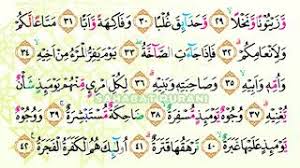 وَّزَيْتُوْنًا وَّنَخْلًاۙ ٢٩ وَّحَدَاۤئِقَ غُلْبًاۙ ٣٠ وَفَاكِهَةً وَّاَبًّاۙ ٣١ مَتَاعًا لَّكُمْ
وَلِاَنْعَامِكُمْۗ ٣٢ فَاِذَا جَاۤءَتِ الصَّاۤخَّةُۖ ٣٣ يَوْمَ يَفِرُّ الْمَرْءُ مِنْ اَخِيْهِۙ ٣٤
وَاُمِّهٖ وَاَبِيْهِۙ ٣٥ وَصَاحِبَتِهٖ وَبَنِيْهِۗ ٣٦ لِكُلِّ امْرِئٍ مِّنْهُمْ يَوْمَىِٕذٍ شَأْنٌ
يُّغْنِيْهِۗ ٣٧ وُجُوْهٌ يَّوْمَىِٕذٍ مُّسْفِرَةٌۙ ٣٨ ضَاحِكَةٌ مُّسْتَبْشِرَةٌۚ ٣٩ وَوُجُوْهٌ
يَّوْمَىِٕذٍ عَلَيْهَا غَبَرَةٌۙ ٤٠ تَرْهَقُهَا قَتَرَةٌۗ ٤١ اُولٰۤىِٕكَ هُمُ الْكَفَرَةُ الْفَجَرَةُ ٤٢